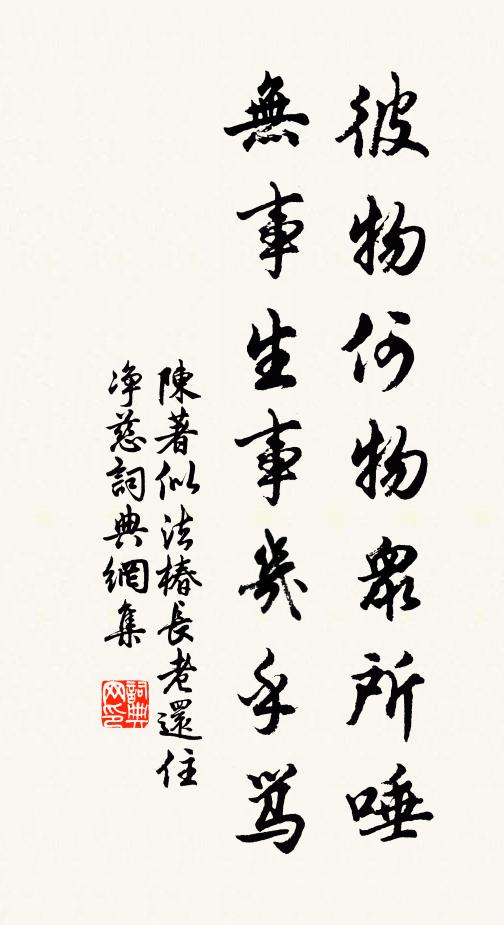 彼物何物衆所唾
無事生事幾乎罵
陳著似法椿長老還住
净慈詞典網集
詞典网印